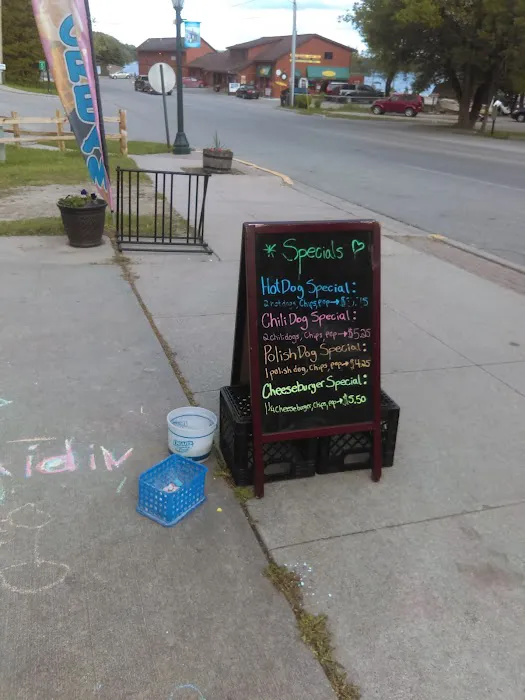 * Specials ♡
HotDog Special:
2 hotdogs, Chips, pop→
Chili Dog Special:
2 chilidogs, Chips, pop→$5.25
Polish Dog Special:
1 polish dog, Chips, pop→$4.25
Cheeseburger Special:
1/4 Cheeseburger, Chips, pop→$5.50